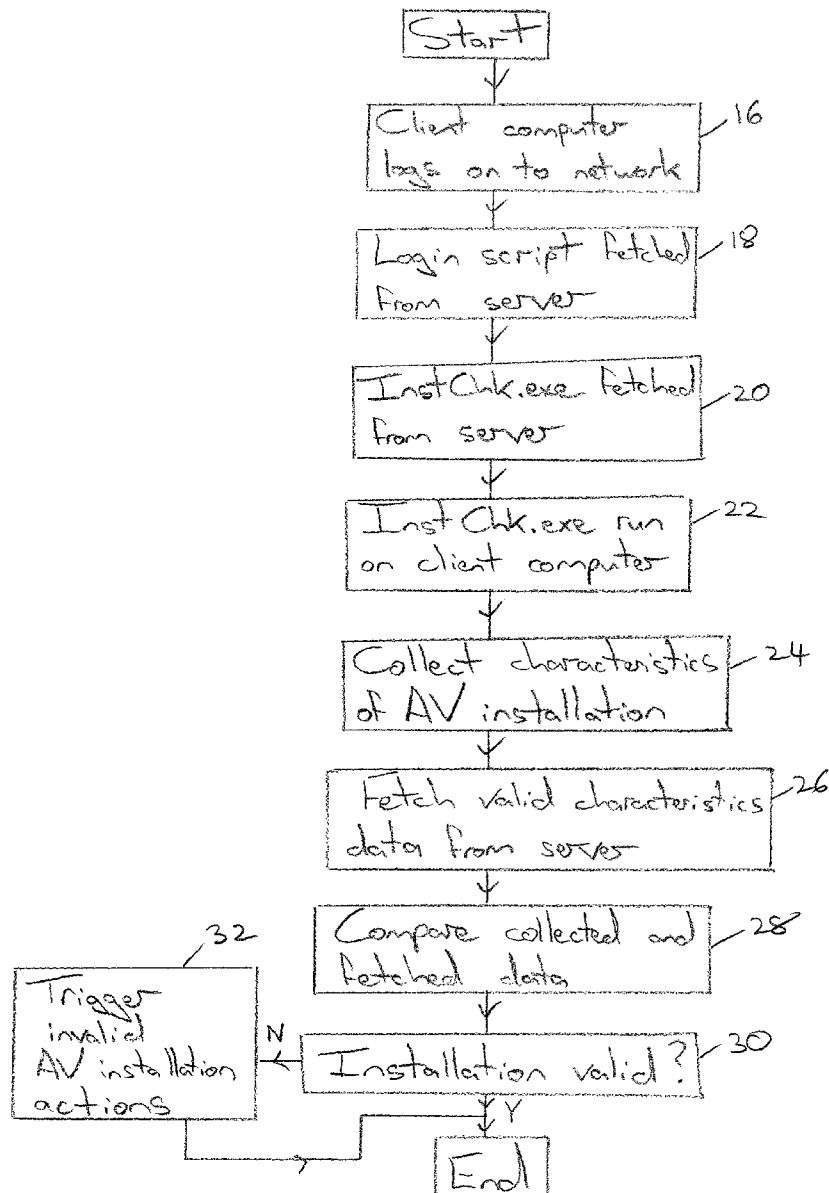 Start
Client computer
logs on to network
16
Login script fetched
from server
18
InstChk.exe fetched
from server
20
InstChk.exe run
on client computer
22
Collect characteristics
of AV installation
24
Fetch valid characteristics
data from server
26
Compare collected and
fetched data
28
Installation valid?
30
N
32
Trigger
invalid
AV installation
actions
Y
End